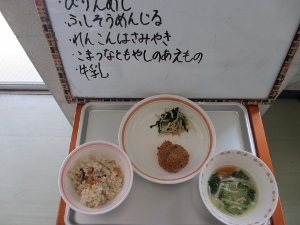 びりんめし
・ふしそうめんじる
・れんこんはさみやき
・こまつなともやしのあえもの
・牛乳